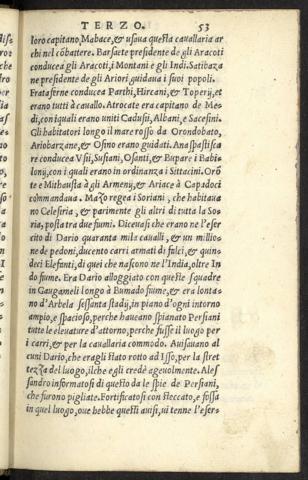 TERZO. 53
loro capitano, Mabace, & usaua questa cauallaria ar
chi nel cõbattere. Barsaete presidente de gli Aracoti
conducea gli Aracoti, i Montani e gli Indi. Satibaza
ne presidente de gli Ariori, guidaua i suoi popoli.
Frataferne conducea Parthi, Hircani, & Toperij, et
erano tutti à cauallo. Atrocate era capitano de Me-
di, con iquali erano uniti Cadusij, Albani, e Sacesini.
Gli habitatori longo il mare rosso da Orondobato,
Ariobarzane, & Osino erano guidati. Anaspastica
re conducea Vsij, Susiani, Osanti, & Bupare i Babi-
lonij, con i quali erano in ordinanza i Sittacini. Orõ
te e Mithausta à gli Armenij, & Ariace à Capadoci
commandaua. Mazo regea i Soriani, che habitaua
no Celesiria, & parimente gli altri di tutta la So=
ria, posta tra due fiumi. Diceuasi che erano ne l'eser-
cito di Dario quaranta mila caualli, & un millio=
ne de pedoni, ducento carri armati di fulci, & quin-
deci Elefanti, di quei che nascono ne l'India, oltre In
do fiume. Era Dario alloggiato con queste squadre
in Gaugameli longo à Bumado fiume, & era lonta-
no d'Arbela sessanta stadij, in piano d'ogni intorno
ampio, e spacioso, perche haueano spianato Persiani
tutte le eleuature d'attorno, perche fusse il luogo per
i carri, & per la cauallaria commodo. Auisauano al
cuni Dario, che eragli stato rotto ad Isso, per la stret
tezza del luogo, ilche egli credè ageuolmente. Ales
sandro informatosi di questo da le spie de Persiani,
che furono pigliate. Fortificatosi con steccato, e fossa
in quel luogo, oue hebbe questi auisi, ui tenne l'eser-